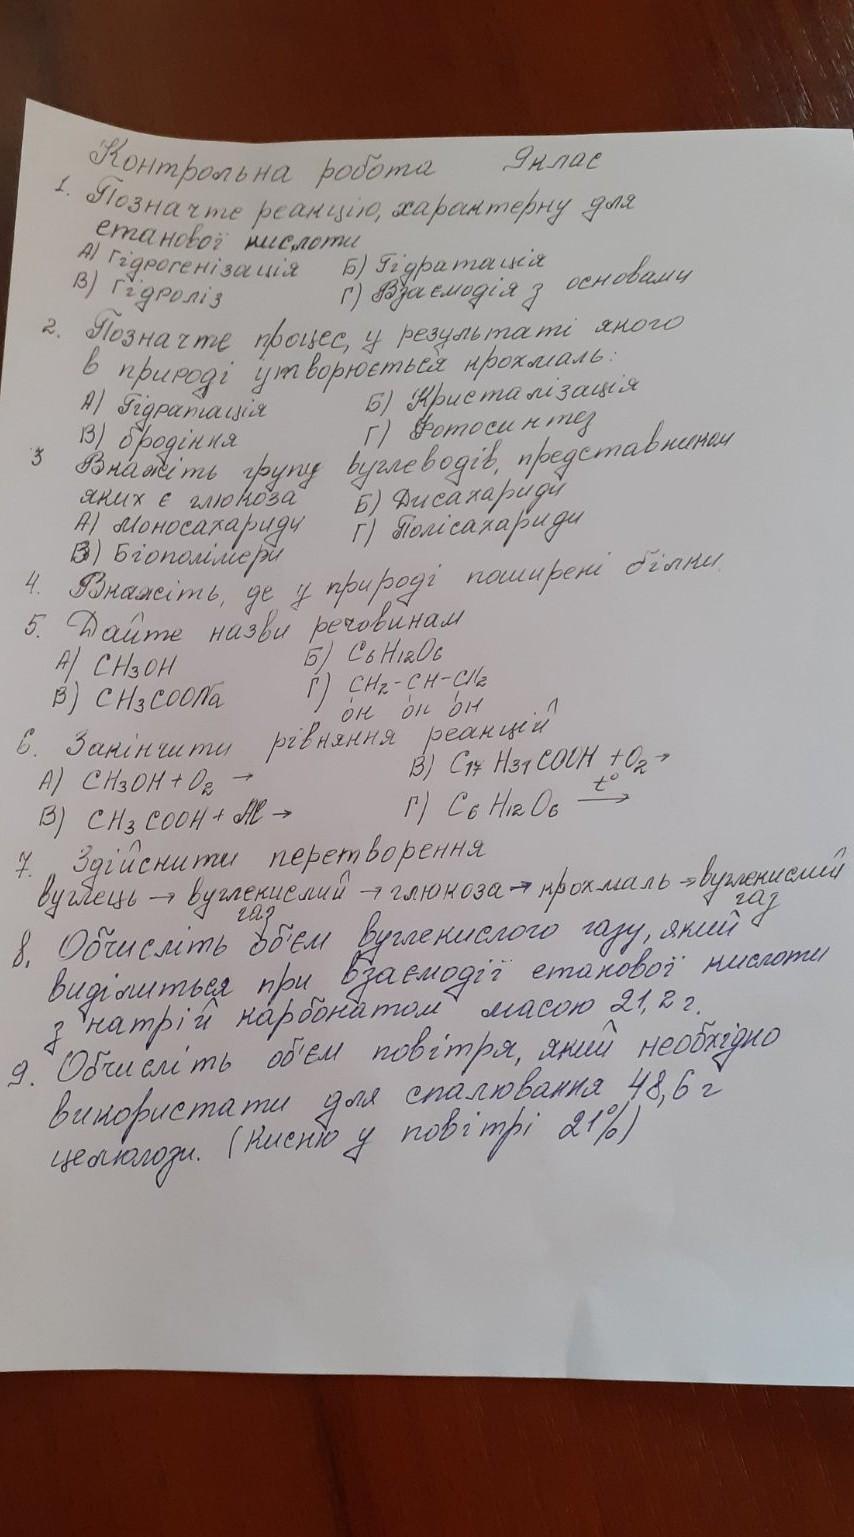 Контрольна робота 9клас
1. Позначте реакцію, характерну для
етанової кислоти
А) Гідрогенізація Б) Гідратація
В) Гідроліз Г) Взаємодія з основами
2. Позначте процес, у результаті якого
в природі утворюється крохмаль:
А) Гідратація Б) Кристалізація
В) бродіння Г) Фотосинтез
3 Вкажіть групу вуглеводів, представником
яких є глюкоза Б) Дисахариди
А) Моносахариди Г) Полісахариди
В) Біополімери
4. Вкажіть, де у природі поширені білки.
5. Дайте назви речовинам
А) CH3OH Б) C6H12O6
В) CH3COONa Г) CH2-CH-CH2
OH OH OH
6. Закінчити рівняння реакцій
А) CH3OH + O2 → В) C17H31COOH + O2 →
В) CH3COOH + Al → Г) C6H12O6 t° →
7. Здійснити перетворення
вуглець → вуглекислий → глюкоза → крохмаль → вуглекислий
газ газ
8. Обчисліть об'єм вуглекислого газу, який
виділиться при взаємодії етанової кислоти
з натрій карбонатом масою 21,2 г.
9. Обчисліть об'єм повітря, який необхідно
використати для спалювання 48,6 г
целюлози. (Кисню у повітрі 21%)